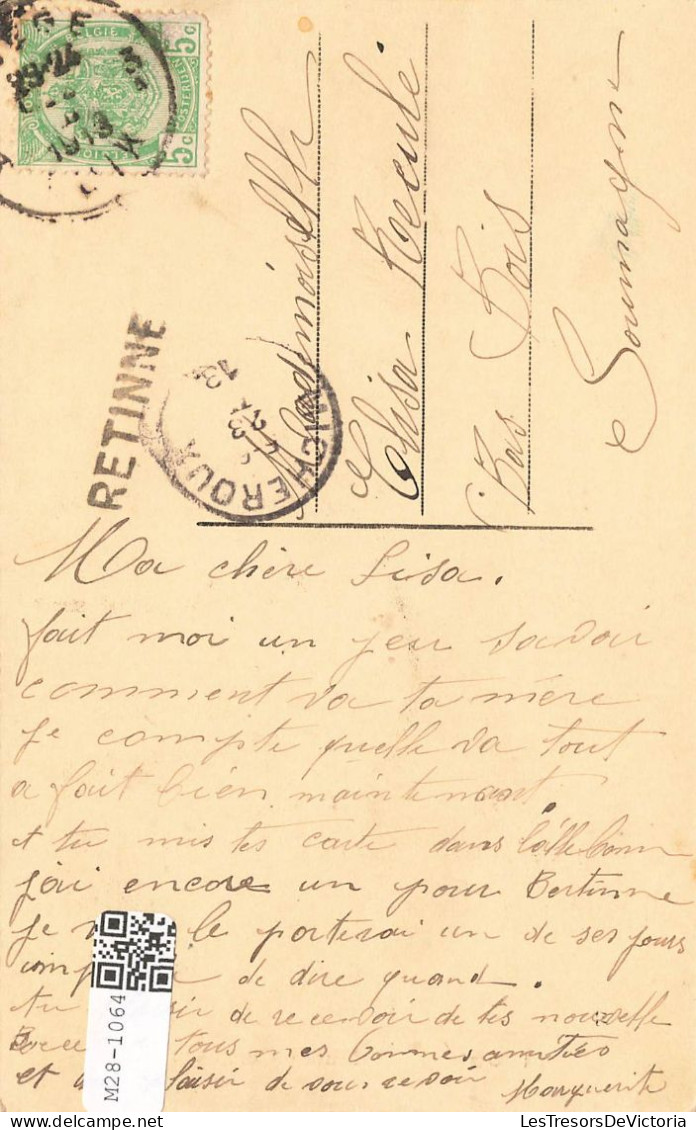 BELGIE
5c
5c
1913
RETINNE
MICHEROUX
13
Mademoiselle
Elisa Recule
Bas Bois
Soumagne
Ma chère Lisa.
fait moi un peu savoir
comment va ta mère
je compte quelle va tout
a fait bien maintenant.
et tu mis tes carte dans
j'ai encore un pour Bertinne
je le porterai un de ses jours
de dire quand.
de recevoir de tes nouvelle
tous mes bonnes amitiés
et de vous revoir Marguerite
M28-1064
www.LesTresorsDeVictoria.com